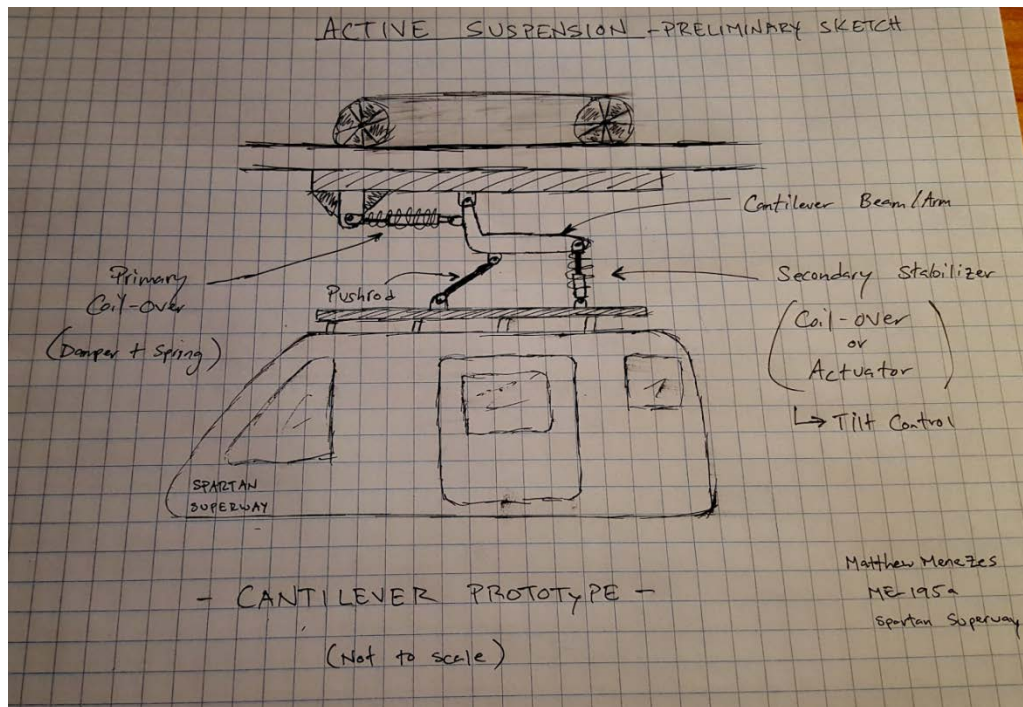 ACTIVE SUSPENSION - PRELIMINARY SKETCH
Cantilever Beam/Arm
Primary
Coil-Over
(Damper + Spring)
Pushrod
Secondary Stabilizer
(Coil-over
or
Actuator)
↳ Tilt Control
SPARTAN
SUPERWAY
- CANTILEVER PROTOTYPE -
(Not to scale)
Matthew Menezes
ME 195a
Spartan Superway